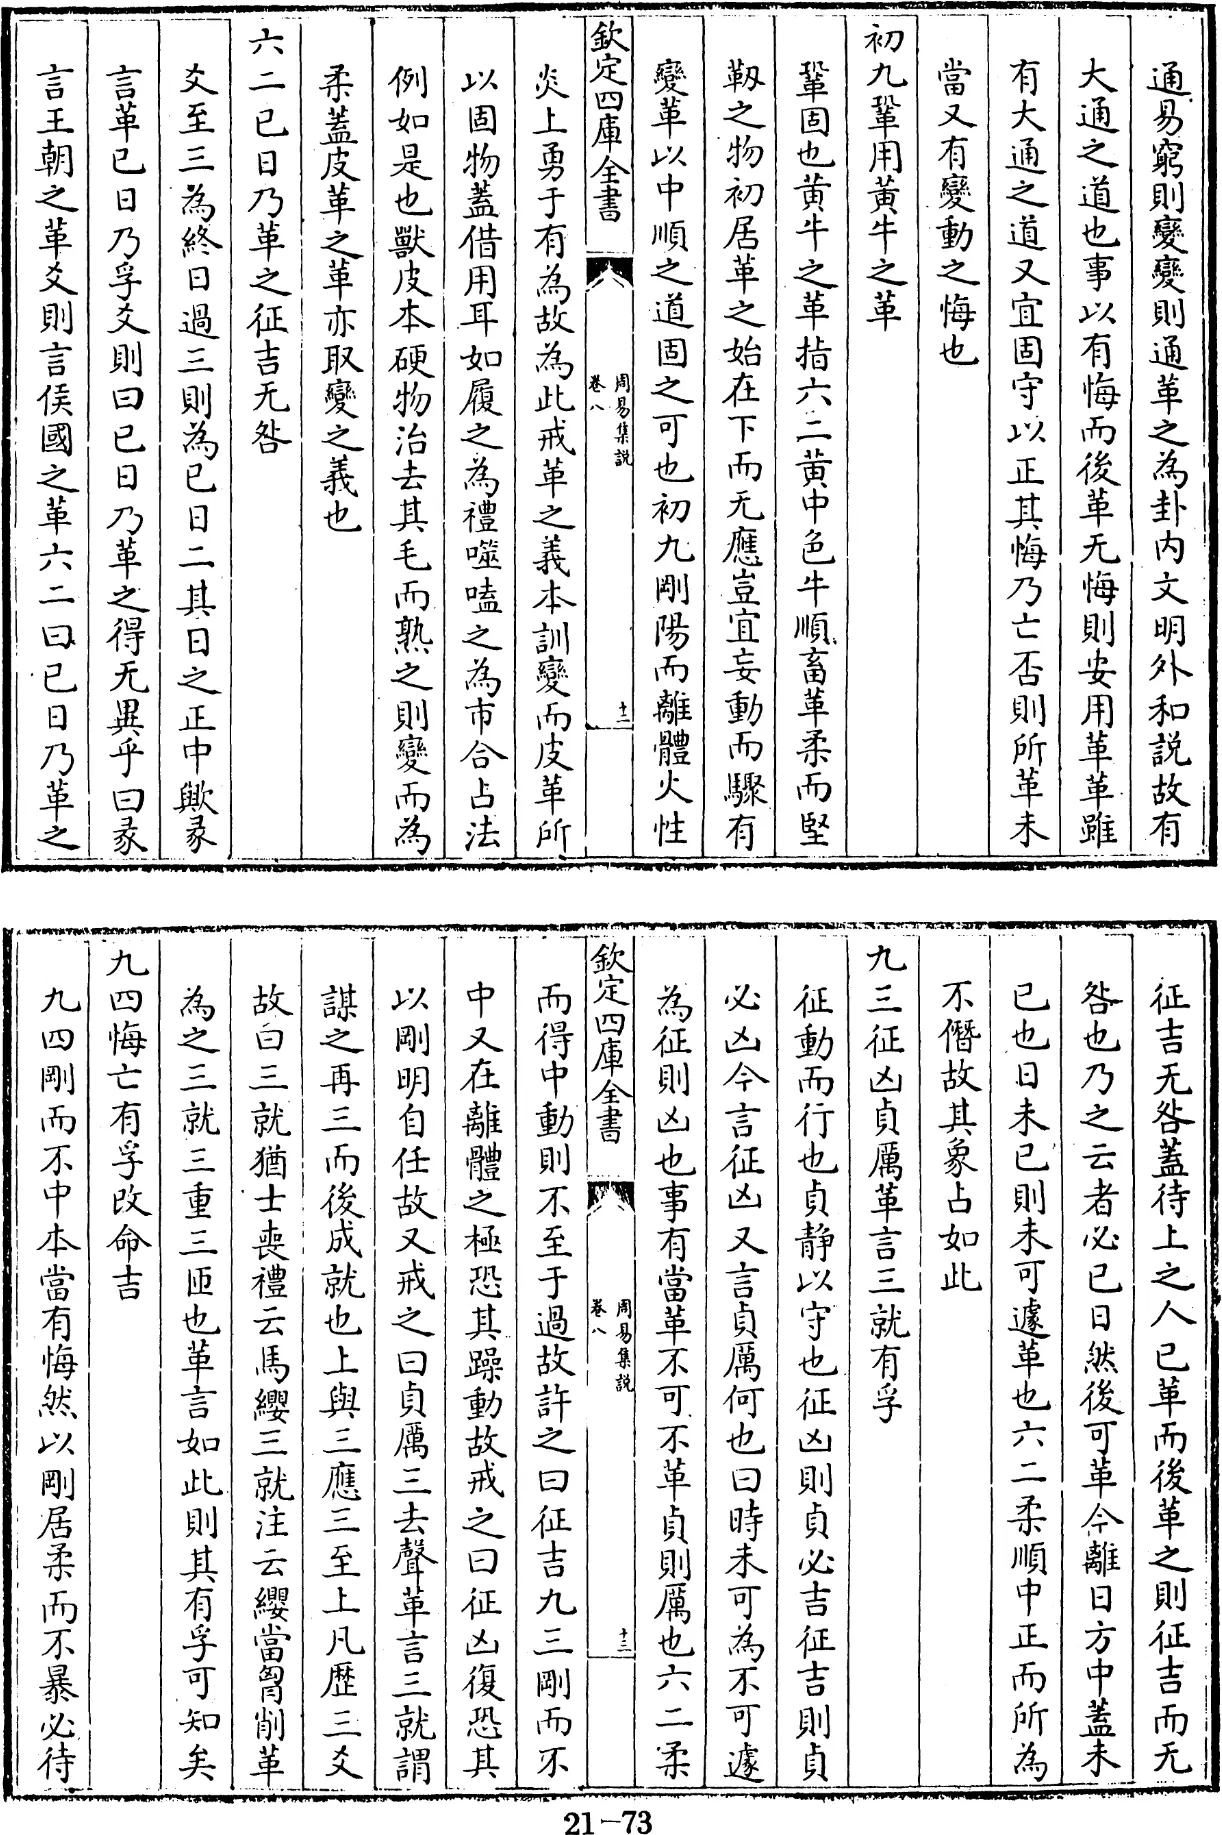 通易窮則變變則通革之為卦内文明外和説故有
大通之道也事以有悔而後革无悔則安用革革雖
有大通之道又宜固守以正其悔乃亡否則所革未
當又有變動之悔也
初九鞏用黄牛之革
鞏固也黄牛之革指六二黄中色牛順畜革柔而堅
靱之物初居革之始在下而无應豈宜妄動而驟有
變革以中順之道固之可也初九剛陽而離體火性
欽定四庫全書
周易集説
卷八
十二
炎上勇于有為故為此戒革之義本訓變而皮革所
以固物蓋借用耳如履之為禮噬嗑之為市合占法
例如是也獸皮本硬物治去其毛而熟之則變而為
柔蓋皮革之革亦取變之義也
六二已日乃革之征吉无咎
爻至三為終日過三則為已日二其日之正中歟彖
言革已日乃孚爻則曰已日乃革之得无異乎曰彖
言王朝之革爻則言侯國之革六二曰已日乃革之
征吉无咎蓋待上之人已革而後革之則征吉而无
咎也乃之云者必已日然後可革今離日方中蓋未
已也日未已則未可遽革也六二柔順中正而所為
不僭故其象占如此
九三征凶貞厲革言三就有孚
征動而行也貞静以守也征凶則貞必吉征吉則貞
必凶今言征凶又言貞厲何也曰時未可為不可遽
為征則凶也事有當革不可不革貞則厲也六二柔
欽定四庫全書
周易集説
卷八
十三
而得中動則不至于過故許之曰征吉九三剛而不
中又在離體之極恐其躁動故戒之曰征凶復恐其
以剛明自任故又戒之曰貞厲三去聲革言三就謂
謀之再三而後成就也上與三應三至上凡歷三爻
故曰三就猶士喪禮云馬纓三就注云纓當胷削革
為之三就三重三匝也革言如此則其有孚可知矣
九四悔亡有孚改命吉
九四剛而不中本當有悔然以剛居柔而不暴必待
21-73